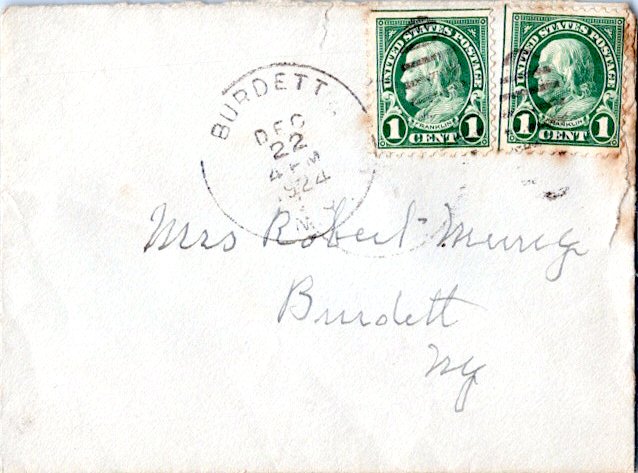 UNITED STATES POSTAGE
FRANKLIN
1 CENT 1
UNITED STATES POSTAGE
FRANKLIN
1 CENT 1
BURDETT
DEC
22
4 PM
1924
N.Y.
Mrs Robert
Burdett
Ny